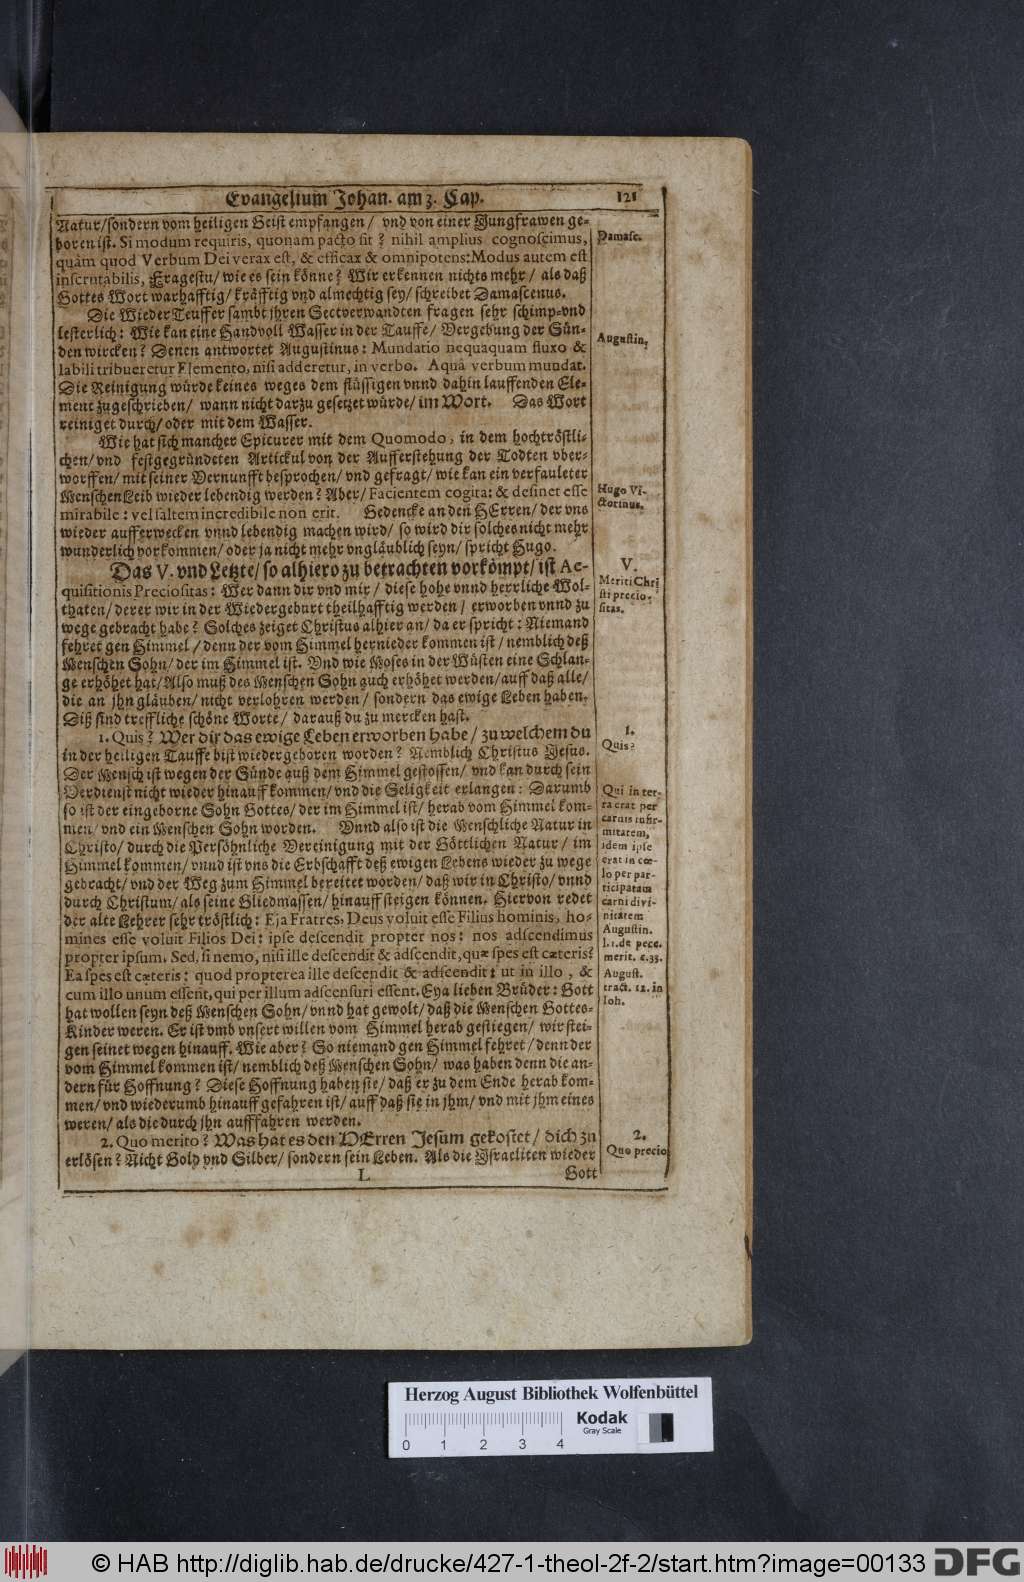 Evangelium Johan. am 3. Cap. 121
Natur/sondern vom heiligen Geist empfangen/ vnd von einer Jungfrawen ge-
boren ist. Si modum requiris, quonam pacto sit? nihil amplius cognoscimus,
quàm quod Verbum Dei verax est, & efficax & omnipotens: Modus autem est
inscrutabilis, Fragestu/ wie es sein könne? Wir erkennen nichts mehr/ als daß
Gottes Wort warhafftig/ kräfftig vnd almechtig sey/ schreibet Damascenus.
Die WiederTeuffer sambt jhren Sectverwandten fragen sehr schimp-vnd
lesterlich: Wie kan eine Handvoll Wasser in der Tauffe/ Vergebung der Sün-
den wircken? Denen antwortet Augustinus: Mundatio nequaquam fluxo &
labili tribueretur Elemento, nisi adderetur, in verbo. Aquâ verbum mundat.
Die Reinigung würde keines weges dem flüssigen vnnd dahin lauffenden Ele-
ment zugeschrieben/ wann nicht darzu gesetzet würde/ im Wort. Das Wort
reiniget durch/ oder mit dem Wasser.
Wie hat sich mancher Epicurer mit dem Quomodo, in dem hochtröstli-
chen/ vnd festgegründeten Artickul von der Aufferstehung der Todten vber-
worffen/ mit seiner Vernunfft besprochen/ vnd gefragt/ wie kan ein verfauleter
MenschenLeib wieder lebendig werden? Aber/ Facientem cogita: & desinet esse
mirabile: vel saltem incredibile non erit. Gedencke an den HErren/ der vns
wieder aufferwecken vnnd lebendig machen wird/ so wird dir solches nicht mehr
wunderlich vorkommen/ oder ja nicht mehr vngläublich seyn/ spricht Hugo.
Das V. vnd Letzte/ so alhiero zu betrachten vorkömpt/ ist Ac-
quisitionis Preciositas: Wer dann dir vnd mir/ diese hohe vnnd herrliche Wol-
thaten/ derer wir in der Wiedergeburt theilhafftig werden/ erworben vnnd zu
wege gebracht habe? Solches zeiget Christus alhier an/ da er spricht: Niemand
fehret gen Himmel/ denn der vom Himmel hernieder kommen ist/ nemblich deß
Menschen Sohn/ der im Himmel ist. Vnd wie Moses in der Wüsten eine Schlan-
ge erhöhet hat/ Also muß des Menschen Sohn auch erhöhet werden/ auff daß alle/
die an jhn gläuben/ nicht verlohren werden/ sondern das ewige Leben haben.
Diß sind treffliche schöne Worte/ darauß du zu mercken hast.
1. Quis? Wer dir das ewige Leben erworben habe/ zu welchem du
in der heiligen Tauffe bist wiedergeboren worden? Nemblich Christus Jesus.
Der Mensch ist wegen der Sünde auß dem Himmel gestossen/ vnd kan durch sein
Verdienst nicht wieder hinauff kommen/ vnd die Seligkeit erlangen: Darumb
so ist der eingeborne Sohn Gottes/ der im Himmel ist/ herab vom Himmel kom-
men/ vnd ein Menschen Sohn worden. Vnnd also ist die Menschliche Natur in
Christo/ durch die Persöhnliche Vereinigung mit der Göttlichen Natur/ im
Himmel kommen/ vnnd ist vns die Erbschafft deß ewigen Lebens wieder zu wege
gebracht/ vnd der Weg zum Himmel bereitet worden/ daß wir in Christo/ vnnd
durch Christum/ als seine Gliedmassen/ hinauff steigen können. Hiervon redet
der alte Lehrer sehr tröstlich: Eja Fratres, Deus voluit esse Filius hominis, ho-
mines esse voluit Filios Dei: ipse descendit propter nos: nos adscendimus
propter ipsum. Sed, si nemo, nisi ille descendit & adscendit, quæ spes est cæteris?
Ea spes est cæteris: quod propterea ille descendit & adscendit: ut in illo, &
cum illo unum essent, qui per illum adscensuri essent. Eya lieben Brüder: Gott
hat wollen seyn deß Menschen Sohn/ vnnd hat gewolt/ daß die Menschen Gottes-
Kinder weren. Er ist vmb vnsert willen vom Himmel herab gestiegen/ wir stei-
gen seinet wegen hinauff. Wie aber? So niemand gen Himmel fehret/ denn der
vom Himmel kommen ist/ nemblich deß Menschen Sohn/ was haben denn die an-
dern für Hoffnung? Diese Hoffnung haben sie/ daß er zu dem Ende herab kom-
men/ vnd wiederumb hinauff gefahren ist/ auff daß sie in jhm/ vnd mit jhm eines
weren/ als die durch jhn aufffahren werden.
2. Quo merito? Was hat es den HErren Jesum gekostet/ dich zu
erlösen? Nicht Gold vnd Silber/ sondern sein Leben. Als die Israeliten wieder
L Gott
Damasc.
Augustin.
Hugo Vi-
ctorinus.
V.
Meriti Chri
sti precio-
sitas.
1.
Quis?
Qui in ter-
ra erat per
carnis infir-
mitatem,
idem ipse
erat in cœ-
lo per par-
ticipatam
carni divi-
nitatem
Augustin.
l. 1. de pecc.
merit. c. 33.
August.
tract. 12. in
Ioh.
2.
Quo precio
Herzog August Bibliothek Wolfenbüttel
Kodak
Gray Scale
0 1 2 3 4
© HAB http://diglib.hab.de/drucke/427-1-theol-2f-2/start.htm?image=00133
DFG